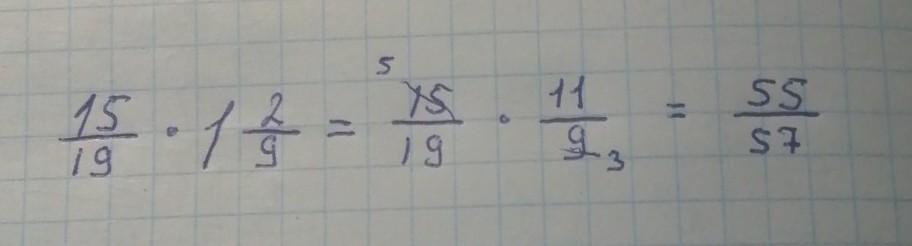 15/19 · 1 2/9 = 5 15/19 · 11/9 3 = 55/57